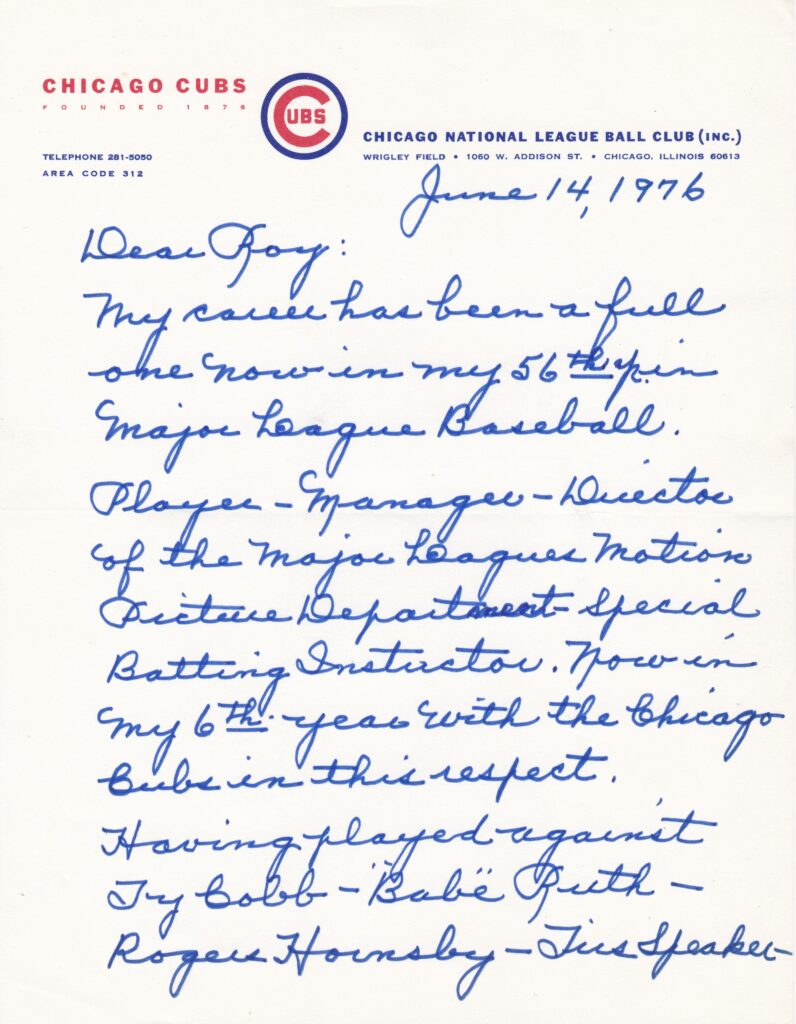 CHICAGO CUBS
FOUNDED 1876
CUBS
CHICAGO NATIONAL LEAGUE BALL CLUB (INC.)
TELEPHONE 281-5050
WRIGLEY FIELD • 1060 W. ADDISON ST. • CHICAGO, ILLINOIS 60613
AREA CODE 312
June 14, 1976
Dear Roy:
My career has been a full
one now in my 56th yr. in
Major League Baseball.
Player - Manager - Director
of the Major Leagues Motion
Picture Department - Special
Batting Instructor. Now in
my 6th. year with the Chicago
Cubs in this respect.
Having played against
Ty Cobb - "Babe" Ruth -
Rogers Hornsby - Tris Speaker -